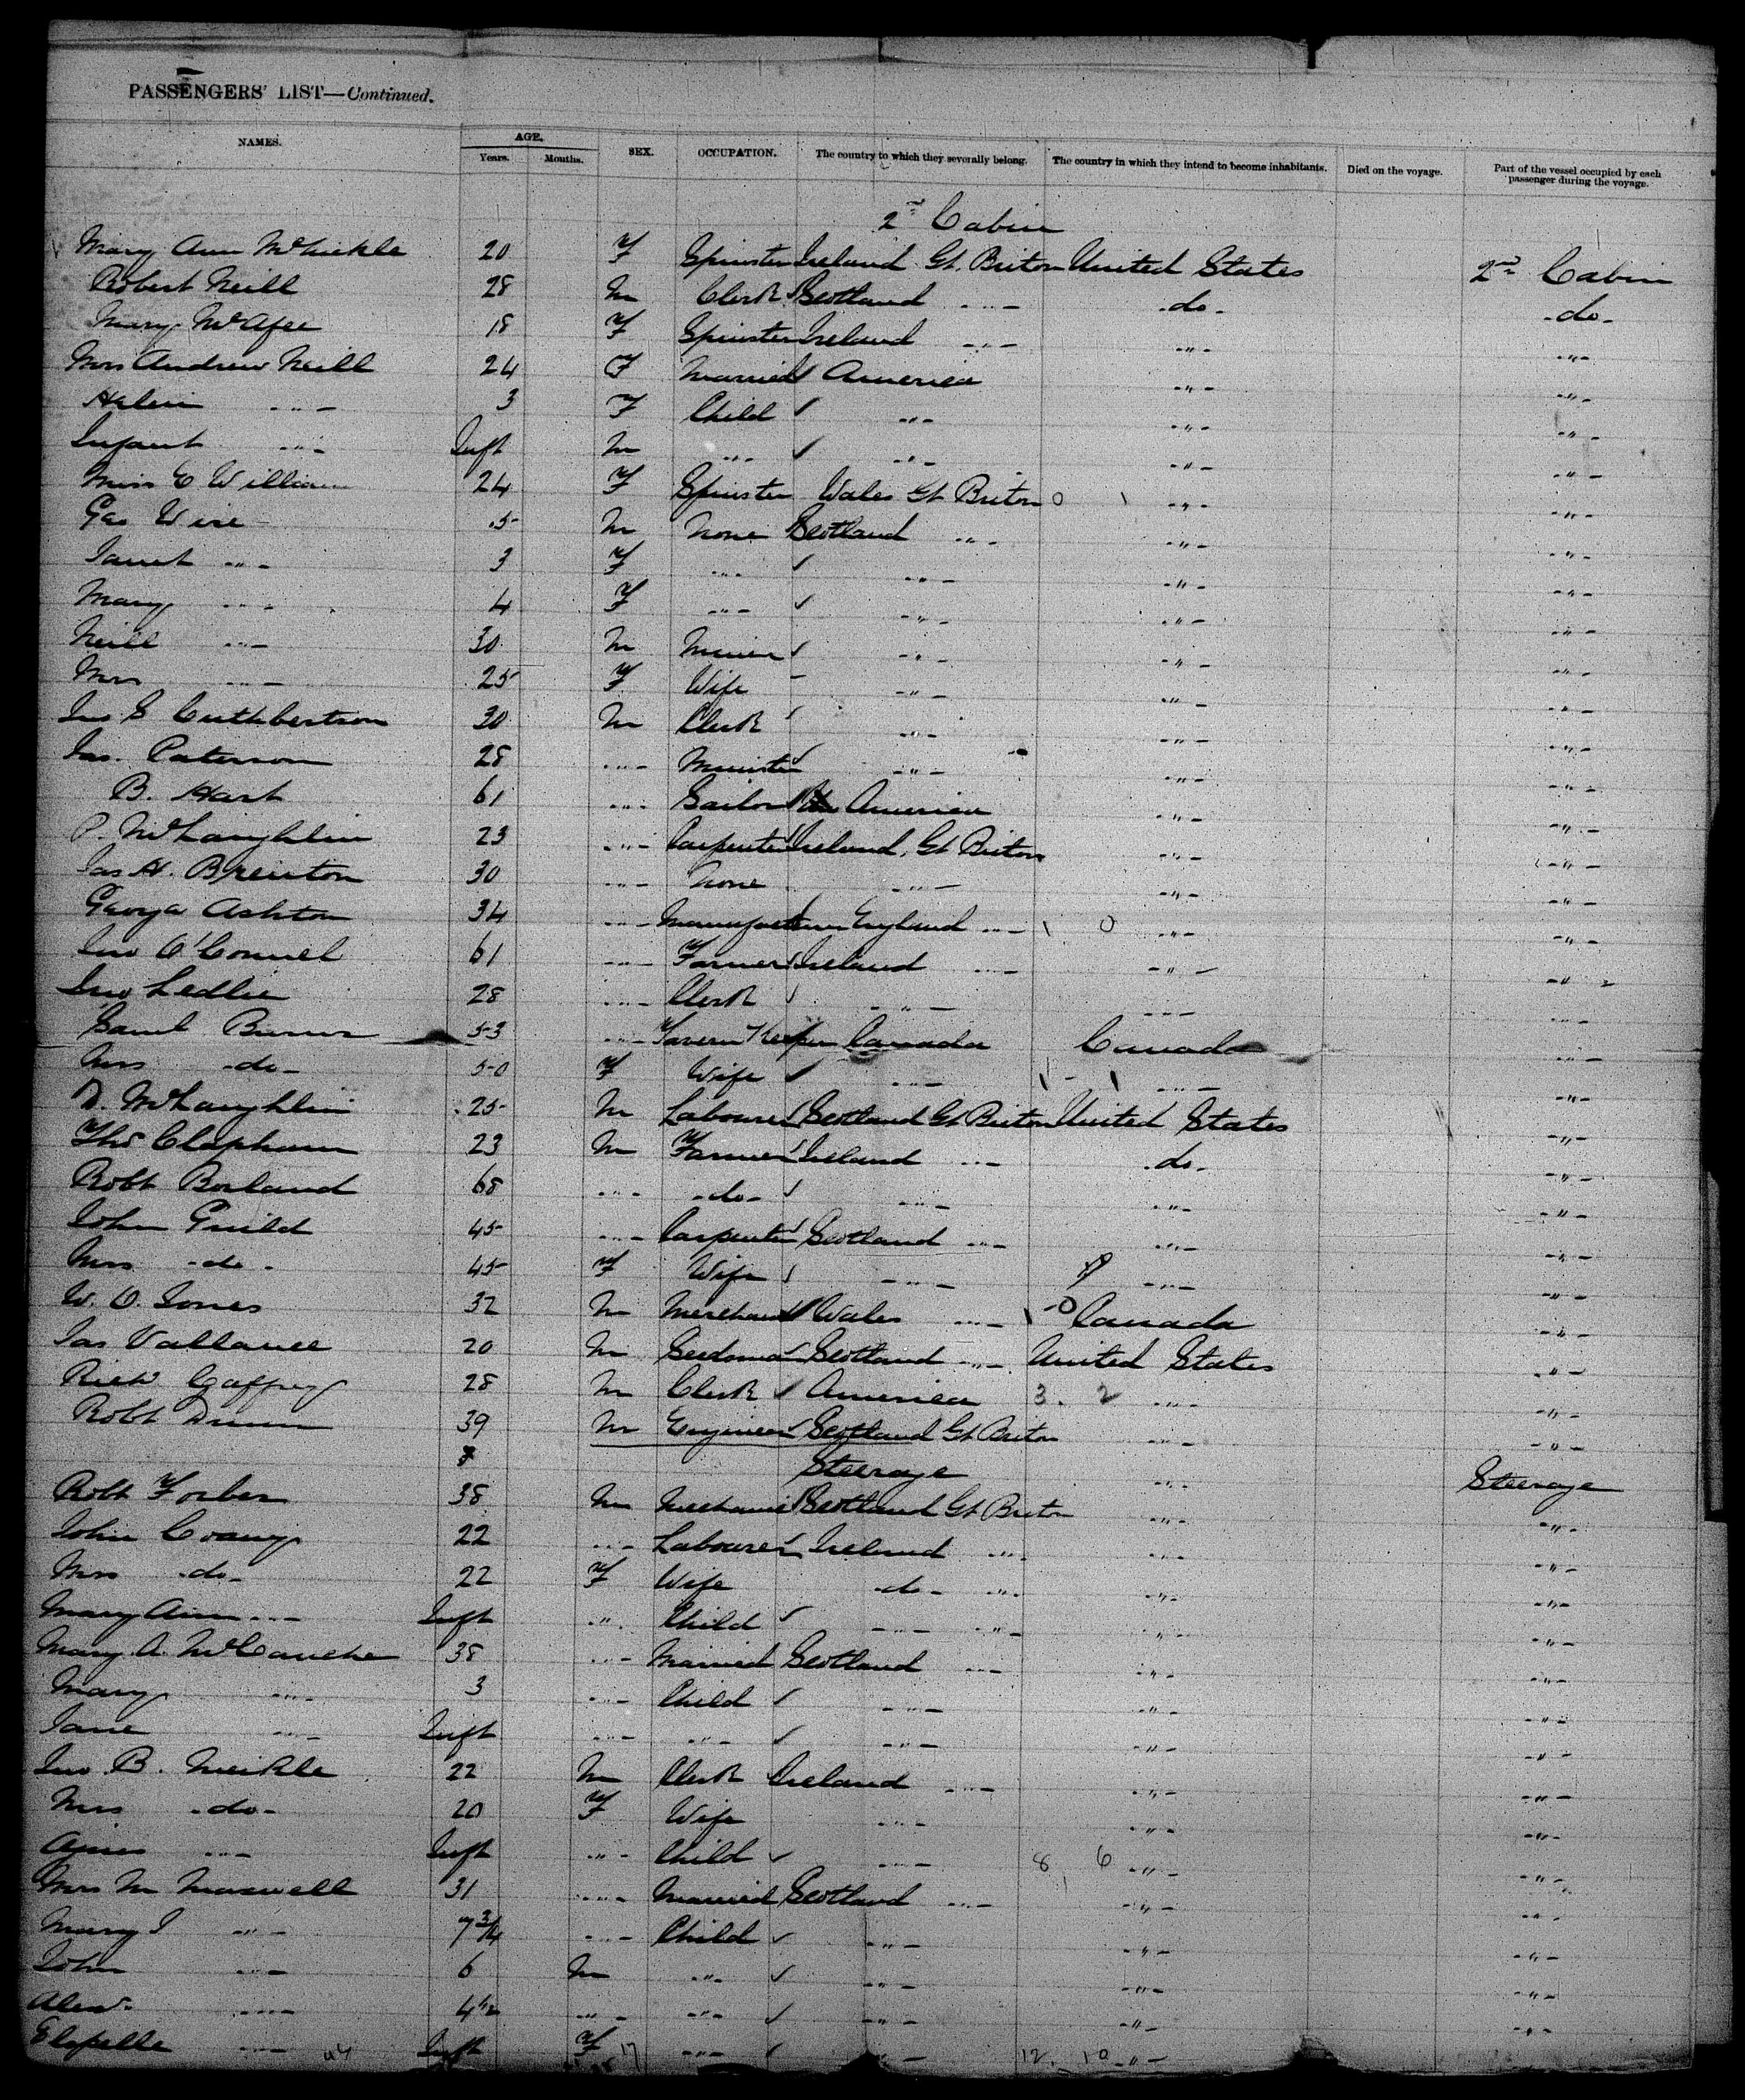 PASSENGERS' LIST—Continued.
NAMES. AGE. Years. Months. SEX. OCCUPATION. The country to which they severally belong. The country in which they intend to become inhabitants. Died on the voyage. Part of the vessel occupied by each passenger during the voyage.
2nd Cabin
Mary Ann 20 F Spinster Ireland Gt. Briton United States 2nd Cabin
Robert Neill 28 M Clerk Scotland -"- -do- -do-
Mary McAfee 18 F Spinster Ireland -"- -"- -"-
Mrs Andrew Neill 24 F Married America -"- -"-
Helen -"- 3 F Child -"- -"- -"-
Infant -"- Inft M -"- -"- -"- -"-
Miss E William 24 F Spinster Wales Gt Briton 0 -"- -"-
Geo Weir 5 M None Scotland -"- -"- -"-
Janet -"- 3 F -"- -"- -"- -"-
Mary -"- 4 F -"- -"- -"- -"-
Neill -"- 30 M Miner -"- -"- -"-
Mrs -"- 25 F Wife -"- -"- -"-
Jno S Cuthbertson 30 M Clerk -"- -"- -"-
Jas. Paterson 28 -"- Minister -"- -"- -"-
B. Hart 61 -"- Sailor America -"- -"-
P. McLaughlin 23 -"- Carpenter Ireland, Gt Briton -"- -"-
Jas H. Brenton 30 -"- None -"- -"- -"-
George Ashton 34 -"- Manufacturer England -"- 0 -"- -"-
Jno O'Connel 61 -"- Farmer Ireland -"- -"- -"-
Jno Ledlie 28 -"- Clerk -"- -"- -"-
Saml Burns 53 -"- Tavern Keeper Canada Canada -"-
Mrs -do- 50 F Wife -"- -"- -"-
D. McLaughlin 25 M Labourer Scotland Gt Briton United States -"-
Thos Clapham 23 M Farmer Ireland -"- -do- -"-
Robt Borland 68 -"- -do- -"- -"- -"-
John Guild 45 -"- Carpenter Scotland -"- -"- -"-
Mrs -do- 45 F Wife -"- -"- -"-
W. O. Jones 32 M Merchant Wales -"- 0 Canada -"-
Jas Vallance 20 M Seedsman Scotland -"- United States -"-
Richd Gaffney 28 M Clerk America 3. 2 -"- -"-
Robt Dunn 39 M Engineer Scotland Gt Briton -"- -"-
Steerage -"- Steerage
Robt Forbes 38 M Mechanic Scotland Gt Briton -"- -"-
John 22 -"- Labourer Ireland -"- -"- -"-
Mrs -do- 22 F Wife -do- -"- -"- -"-
Mary Ann -"- Inft -"- Child -"- -"- -"- -"-
Mary A. 38 -"- Married Scotland -"- -"- -"-
Mary -"- 3 -"- Child -"- -"- -"-
Jane -"- Inft -"- -"- -"- -"- -"-
Jno B. Meikle 22 M Clerk Ireland -"- -"- -"-
Mrs -do- 20 F Wife -"- -"- -"-
Agnes -"- Inft -"- Child -"- 8 6 -"- -"-
Mrs M Maxwell 31 -"- Married Scotland -"- -"- -"-
Mary J -"- 7 3/4 -"- Child -"- -"- -"-
John -"- 6 M -"- -"- -"- -"-
Alexr -"- 4 1/2 -"- -"- -"- -"- -"-
-"- Inft F -"- -"- 12. 10 -"-
17